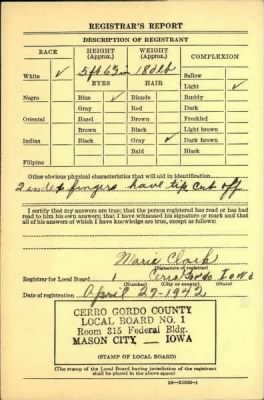 REGISTRAR'S REPORT
DESCRIPTION OF REGISTRANT
RACE HEIGHT (Approx.) WEIGHT (Approx.) COMPLEXION
White ✓ 5 ft 6 3 in 180 lb Sallow
EYES HAIR Light ✓
Negro Blue ✓ Blonde Ruddy
Gray Red Dark
Oriental Hazel Blond Freckled
Brown Brown Light brown
Indian Black Gray ✓ Dark brown
Bald Black
Filipino
Other obvious physical characteristics that will aid in identification
2 index fingers have tip cut off
I certify that my answers are true; that the person registered has read or has had
read to him his own answers; that I have witnessed his signature or mark and that
all of his answers of which I have knowledge are true, except as follows:
Marie Clark
(Signature of registrar)
Registrar for Local Board 1 Cerro Gordo Iowa
(Number) (City or county) (State)
Date of registration April 27-1942
CERRO GORDO COUNTY
LOCAL BOARD NO. 1
Room 315 Federal Bldg.
MASON CITY IOWA
(STAMP OF LOCAL BOARD)
(The stamp of the Local Board having jurisdiction of the registrant
shall be placed in the above space.)